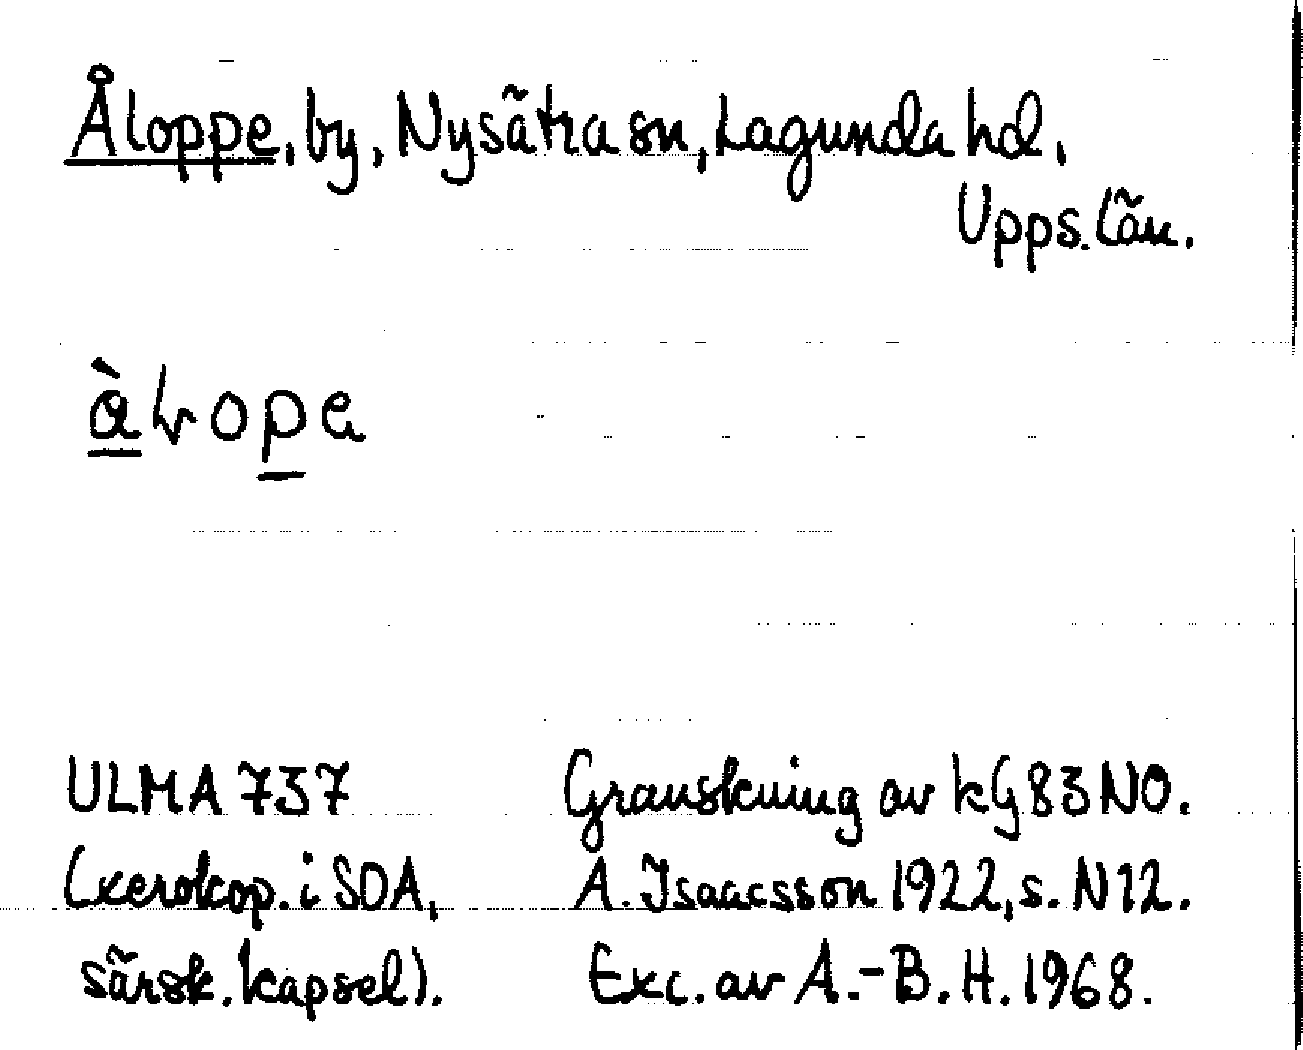 Åloppe, by, Nysätra sn, Lagunda hd.
Upps. län.
ULMA 737
(xerokop. i SOA,
särsk. kapsel).
Granskning av kG 83 NO.
A. Isaacsson 1922, s. N12.
Exc. av A.-B. H. 1968.